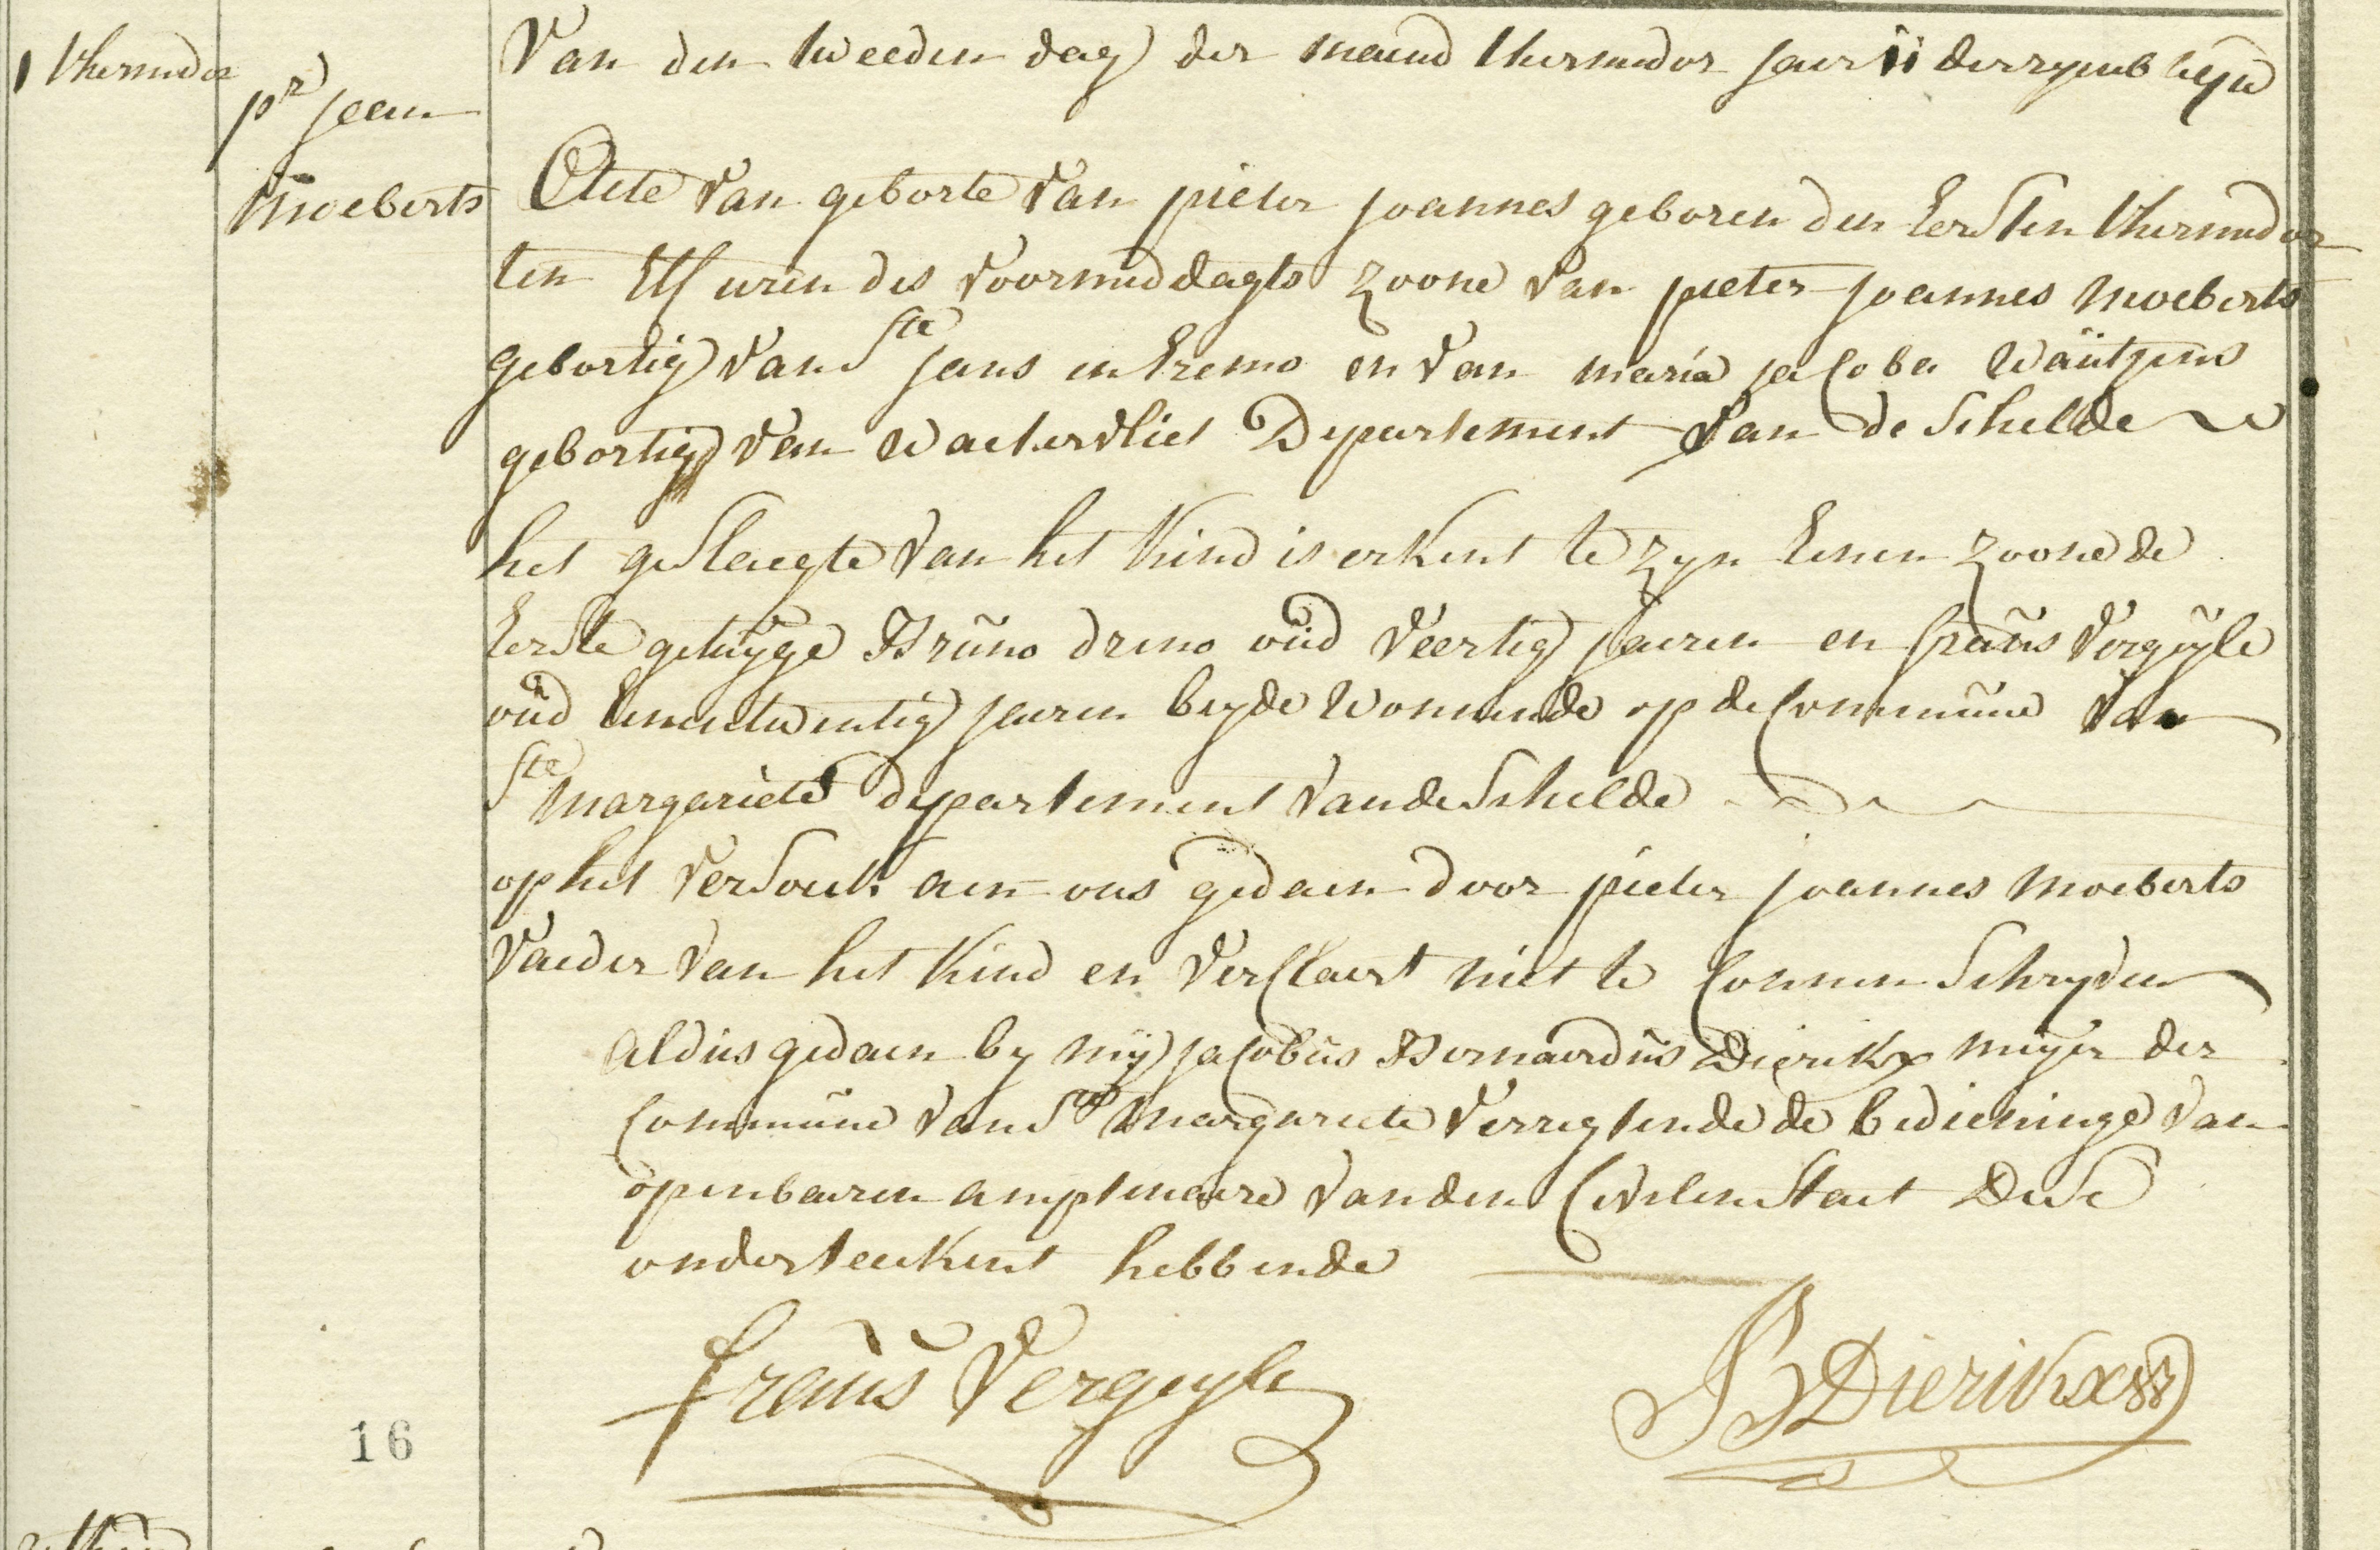 1 thermidor
pr jean
moeberts
Van den tweeden dag der maend thermidor jaer 11 der republique
Acte van geborte van pieter joannes geboren den Eersten thermidor
ten Elf uren des voormiddagts zoone van pieter joannes moeberts
gebortig van Ste jans in Eremo en van maria jacoba
gebortig van Waetervliet Departement van de Schelde
het geslaegte van het Kind is erkent te zyn Eenen zoone de
Eerste getuÿge Bruno oud Veertig jaeren en frans Vergeyle
oud Eenentwintig jaeren beyde Wonende op de Commune Van
Ste margariete departement van de Schelde
op het versoek aen ons gedaen door pieter joannes Moeberts
Vaeder van het Kind en verclaert niet te Connen Schryven
Aldus gedaen by mÿ jacobus Bernardus Dierikx meyer der
Commune van Ste margariete Verregtende de bedieninge van
openbaeren amptenaere van den Civilen Staet Dese
onderteekent hebbende
frans Vergeyle
JB Dierikx
16